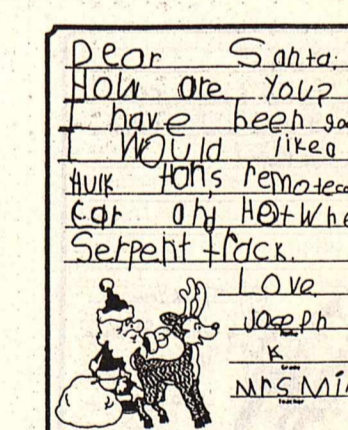 Dear Santa:
How are You?
I have been goo
I WOUld likea
HUlK Hohs remotecc
Car and HotWhe
Serpent track.
Love
Joseph
K
Grade
Mrs Mi
Teacher